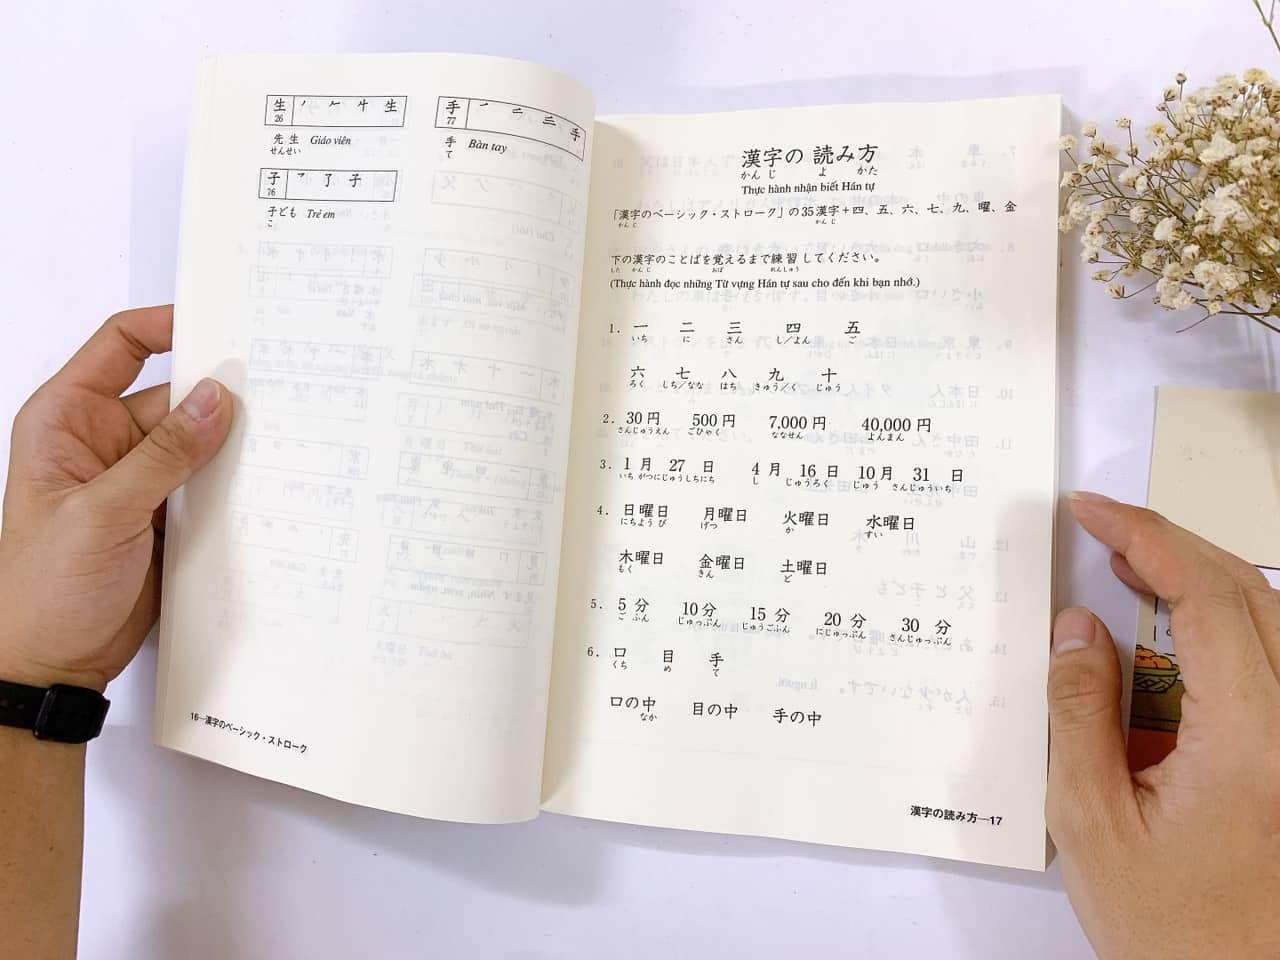 生 ノ 𠂉 牛 生
26
先生 Giáo viên
せんせい
子 乛 了 子
76
子ども Trẻ em
こ
手 一 二 三 手
77
手 Bàn tay
て
16—漢字のベーシック・ストローク
漢字の 読み方
かんじ よ かた
Thực hành nhận biết Hán tự
「漢字のベーシック・ストローク」の35漢字+四、五、六、七、九、曜、金
かんじ かんじ
下の漢字のことばを覚えるまで練習してください。
した かんじ おぼ れんしゅう
(Thực hành đọc những Từ vựng Hán tự sau cho đến khi bạn nhớ.)
1. 一 二 三 四 五
いち に さん し/よん ご
六 七 八 九 十
ろく しち/なな はち きゅう/く じゅう
2. 30円 500円 7,000円 40,000円
さんじゅうえん ごひゃく ななせん よんまん
3. 1月 27日 4月 16日 10月 31日
いち がつにじゅうしちにち し じゅうろく じゅう さんじゅういち
4. 日曜日 月曜日 火曜日 水曜日
にちようび げつ か すい
木曜日 金曜日 土曜日
もく きん ど
5. 5分 10分 15分 20分 30分
ごふん じゅっぷん じゅうごふん にじゅっぷん さんじゅっぷん
6. 口 目 手
くち め て
口の中 目の中 手の中
なか
漢字の読み方—17